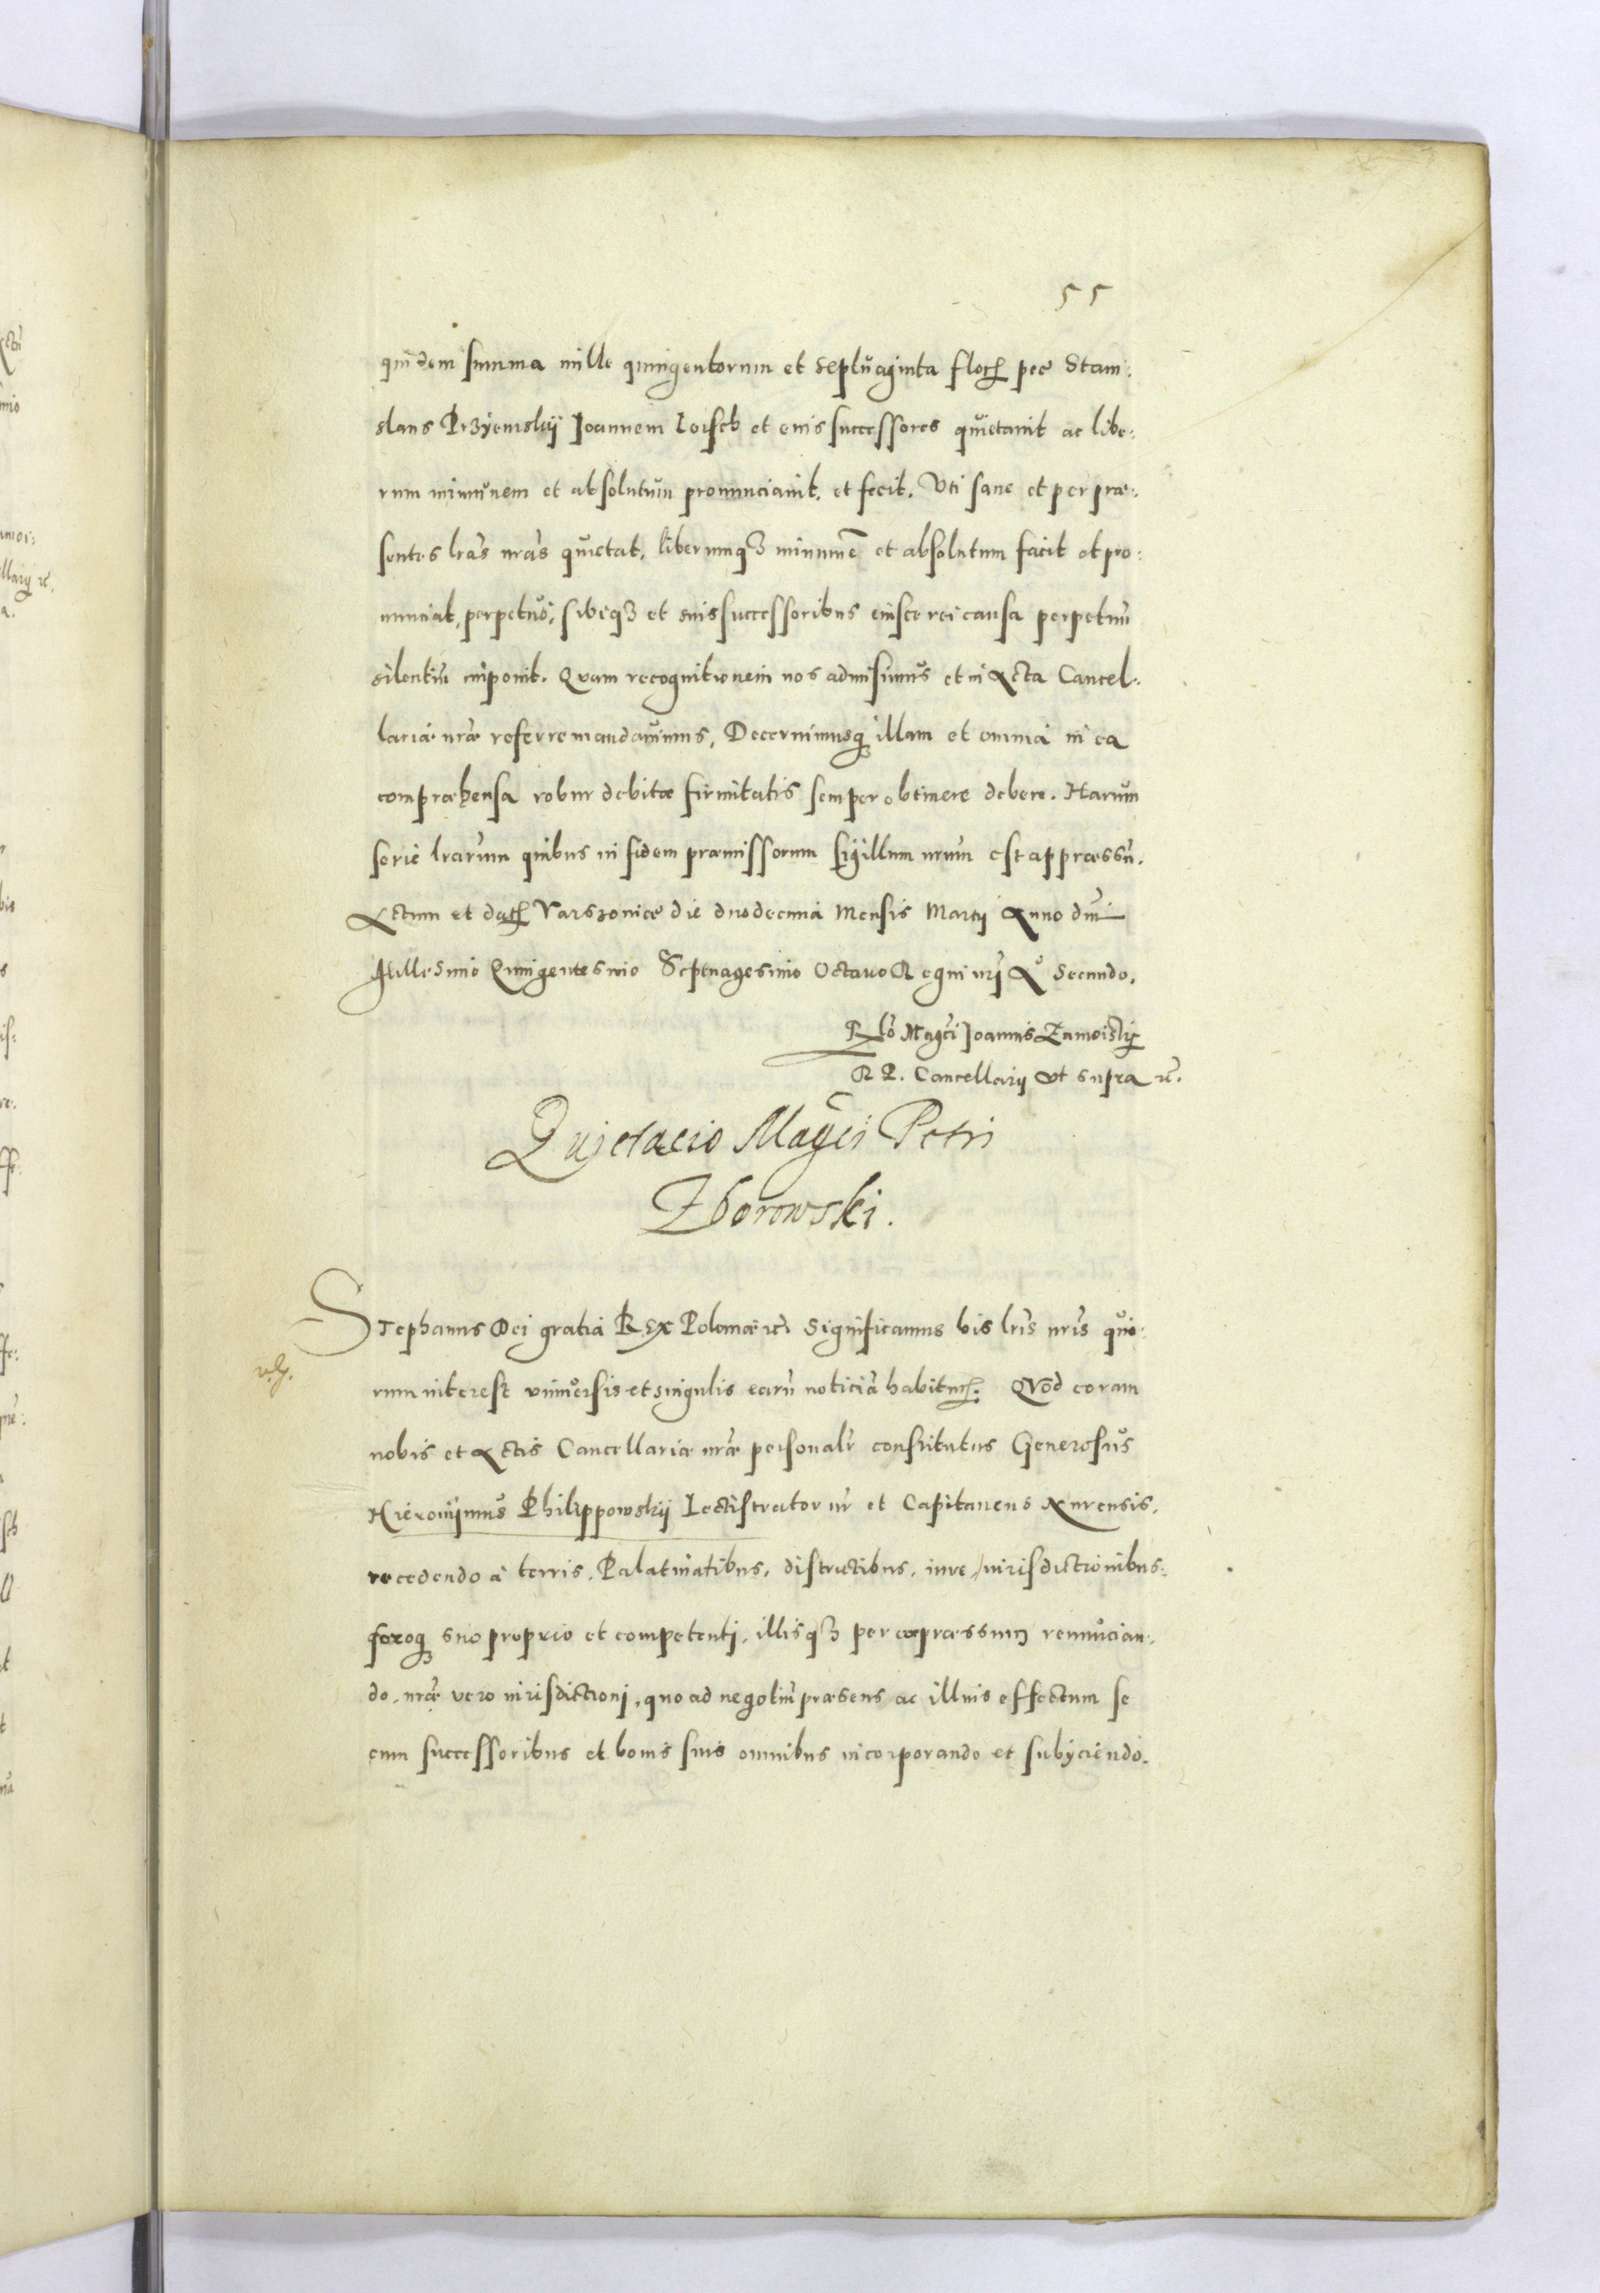 55
quidem summa mille quingentorum et septuaginta floꝝ pec Stani:
slaus Przyemskij Joannem Loisch et eius successores quietauit ac libe:
rum immunem et absolutum pronunciauit. et fecit. Uti sane et per præ:
sentes lras nras quietat. liberumqꝫ immunē et absolutum facit et pro:
nunciat, perpetuo, sibiqꝫ et suis successoribus eiusce rei causa perpetuū
silentiū imponit. Quam recognitionem nos admisimus et in Acta Cancel:
lariæ nræ referre mandauimus, Decernimusqꝫ illam et omnia in ea
compræhensa robur debitæ firmitatis semper obtinere debere. Harum
serie lrarum quibus in fidem præmissorum sigillum nrum est appræssū.
Actum et datꝝ Varszouiæ die duodecima Mensis Martij Anno dni
Millesimo Quingentesimo Septuagesimo Octauo Regni nrj Aº Secundo.
Rlo Magci Joannis Zamoiskij
R P. Cancellarij ut supra etc.
Qujetacio Magci Petri
Zborowski.
Stephanus Dei gratia Rex Poloniæ etc. Significamus his lris nris quo:
rum interest uniuersis et singulis earū noticiā habiturꝝ. Quod coram
nobis et Actis Cancellariæ nræ personalr constitutus Generosus
Hieronimus Philippowskij Lectistrator nr et Capitaneus Nurensis.
recedendo à terris. Palatinatibus, districtibus, iure, iurisdictionibus:
foroqꝫ suo proprio et competentj, illisqꝫ per expræssum renuncian:
do, nræ uero iurisdictionj, quo ad negotiū præsens ac illius effectum se
cum successoribus et bonis suis omnibus incorporando et subijciendo.